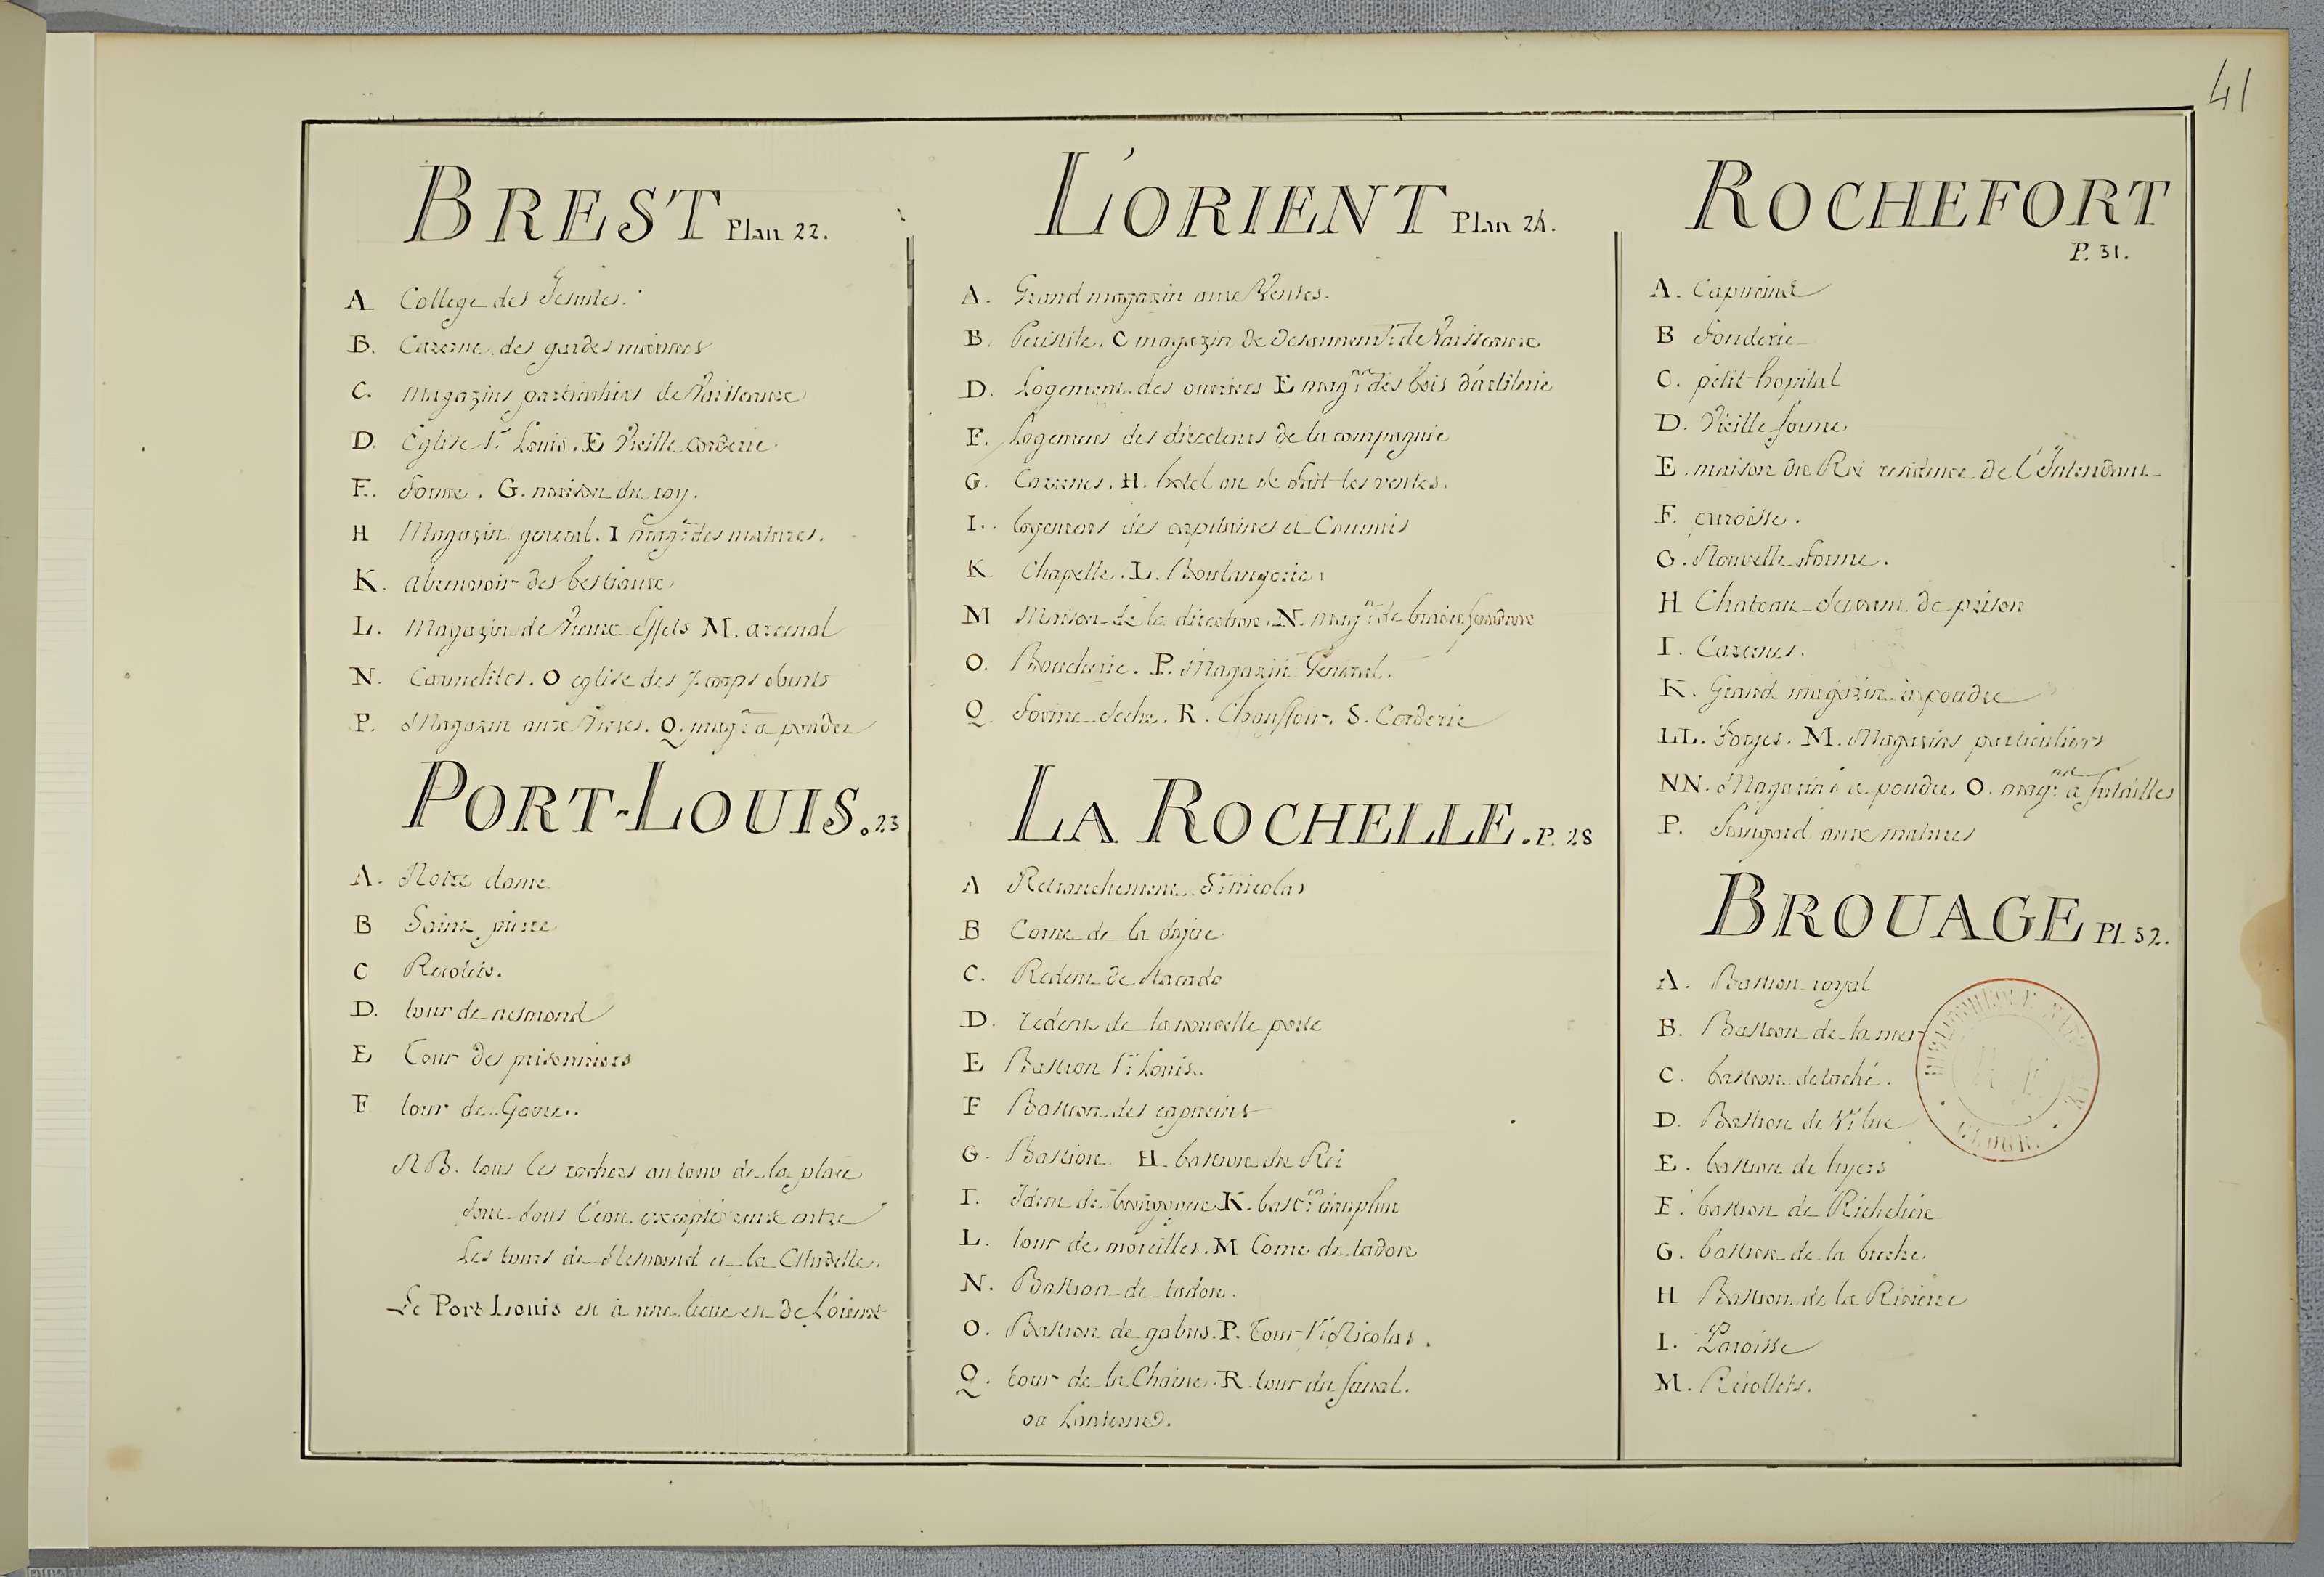 41
BREST Plan 22.
A College des Jesuites.
B. Cazerne des gardes marines
C. Magazins particuliers de Vaisseaux
D. Eglise St. Louis. E Vieille corderie.
F. forme. G. maison du roy.
H Magazin general. I magn. des matures.
K. abreuvoir des bestiaux
L. Magazin de Vieux Effets M. arcenal
N. Carmelites. O eglise des 7. corps saints
P. Magazin aux Vivres. Q. magn. a poudre
PORT-LOUIS. 23
A. Notre dame
B Saint pierre
C Recolets.
D. tour de nesmond
E Tour des prisonniers
F tour de Gavre.
NB. tous les rochers autour de la place
sont sous l'eau excepté ceux entre
Les tours de Nesmond et la Citadelle.
Le Port Louis est à une lieue de L'orient
L'ORIENT Plan 24.
A. Grand magazin aux Ventes.
B. Peristile. C magazin de desarmemt. de Vaisseaux
D. Logement des ouvriers E magn. des bois d'artilerie
F. Logemens des directeurs de la compagnie
G. Cazernes. H. hotel ou se fait les ventes.
I. logemens des capitaines et Commis
K. Chapelle. L. Boulangerie.
M Maison de la direction. N. magn. de
O. Boucherie. P. Magazin General.
Q forme seche. R. Chauffour. S. Corderie
LA ROCHELLE. P. 28
A Retranchement St. nicolas
B Corne de la digue
C. Redent de
D. redent de la nouvelle porte
E Bastion St. Louis.
F Bastion des capucins
G. Bastion H. bastion du Roi
I. Idem de bourgogne K. bastn. dauphin
L. tour de moreilles. M Corne de tadon
N. Bastion de tadon.
O. Bastion de gabus. P. Tour St. Nicolas.
Q. tour de la Chaine. R. tour du fanal.
ou Lanterne.
ROCHEFORT
P. 31.
A. Capucins
B fonderie
C. petit hopital
D. Vieille forme.
E. maison du Roi residence de l'Intendant
F. paroisse.
G. Nouvelle forme.
H Chateau servant de prison
I. Cazernes.
K. Grand magazin à poudre
LL. Forges. M. Magasins particuliers
NN. Magazins a poudre O. magn. a futailles
P. hangard aux matures
BROUAGE Pl. 32.
A. Bastion royal
B. Bastion de la mer
C. bastion détaché.
D. Bastion de St. luc
E. bastion de hyers
F. bastion de Richelieu
G. bastion de la breche.
H Bastion de la Riviere
I. Paroisse
M. Récollets.